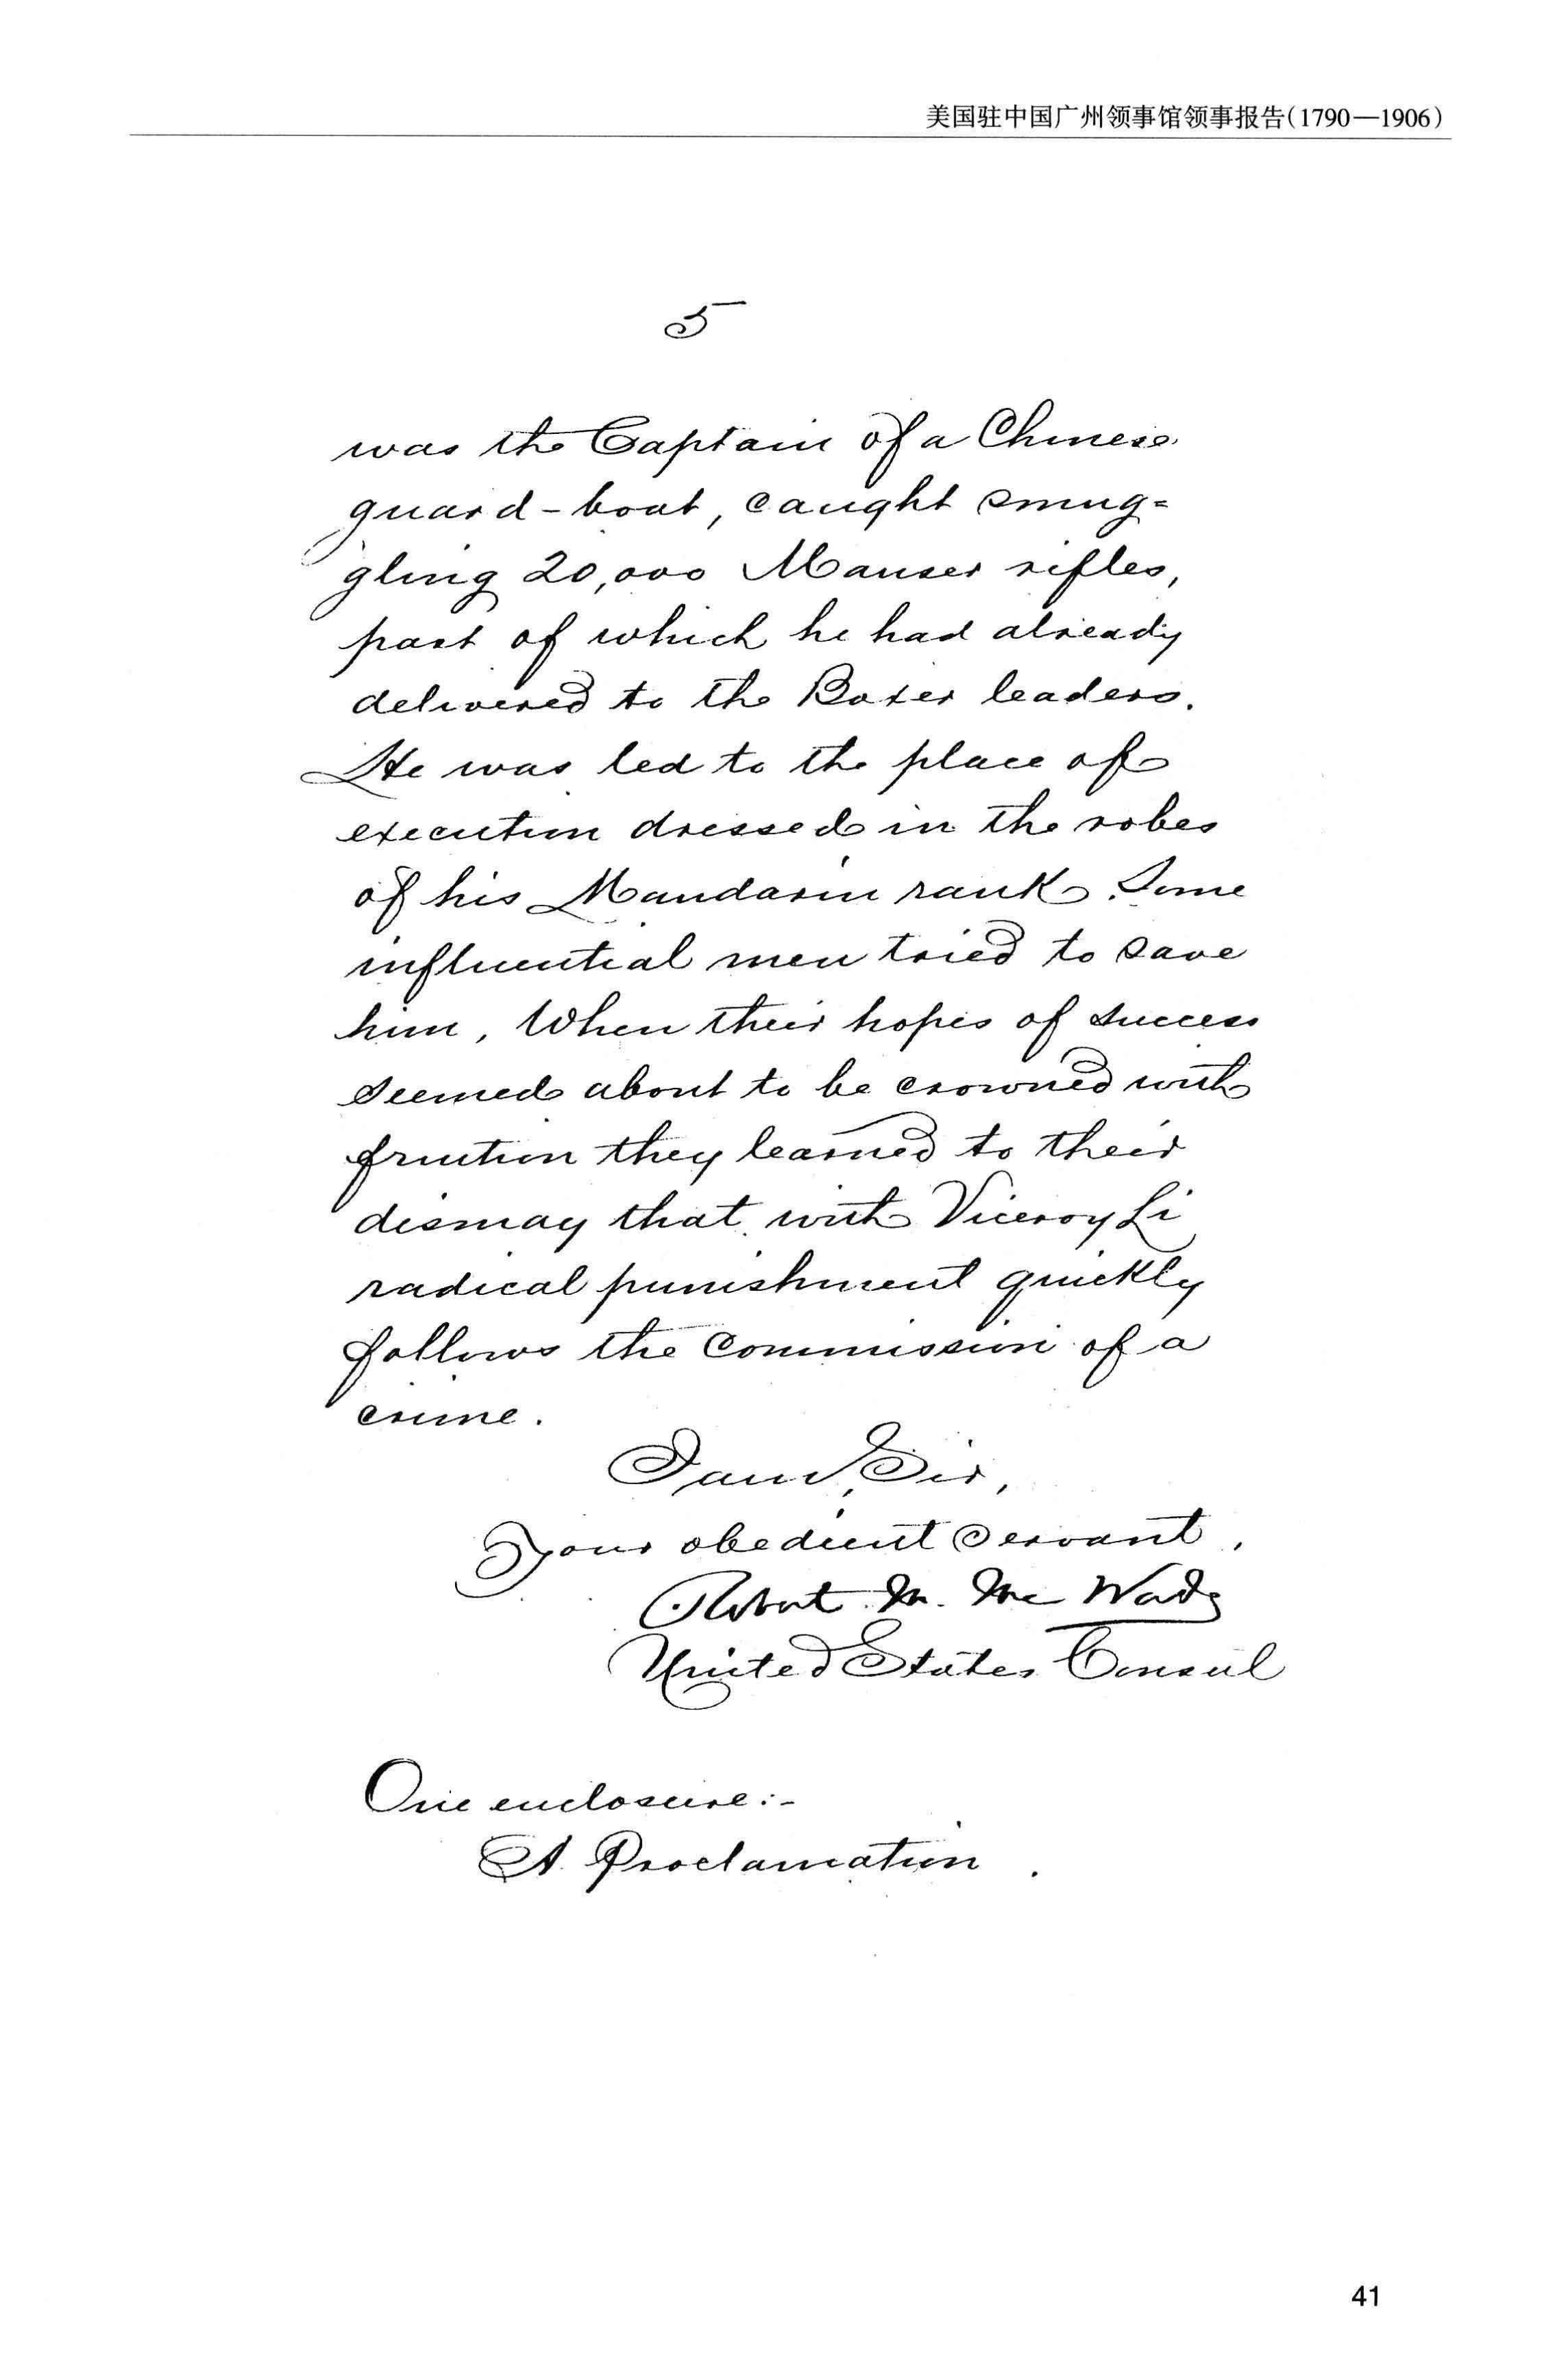 美国驻中国广州领事馆领事报告(1790—1906)
5
was the Captain of a Chinese
guard-boat, caught smug=
gling 20,000 Mauser rifles,
part of which he had already
delivered to the Boxer leaders.
He was led to the place of
execution dressed in the robes
of his Mandarin rank. Some
influential men tried to save
him. When their hopes of success
seemed about to be crowned with
fruition they learned to their
dismay that with Viceroy Li
radical punishment quickly
follows the commission of a
crime.
I am, Sir,
Your obedient servant,
Robert M. McWade
United States Consul
One enclosure:-
A Proclamation.
41